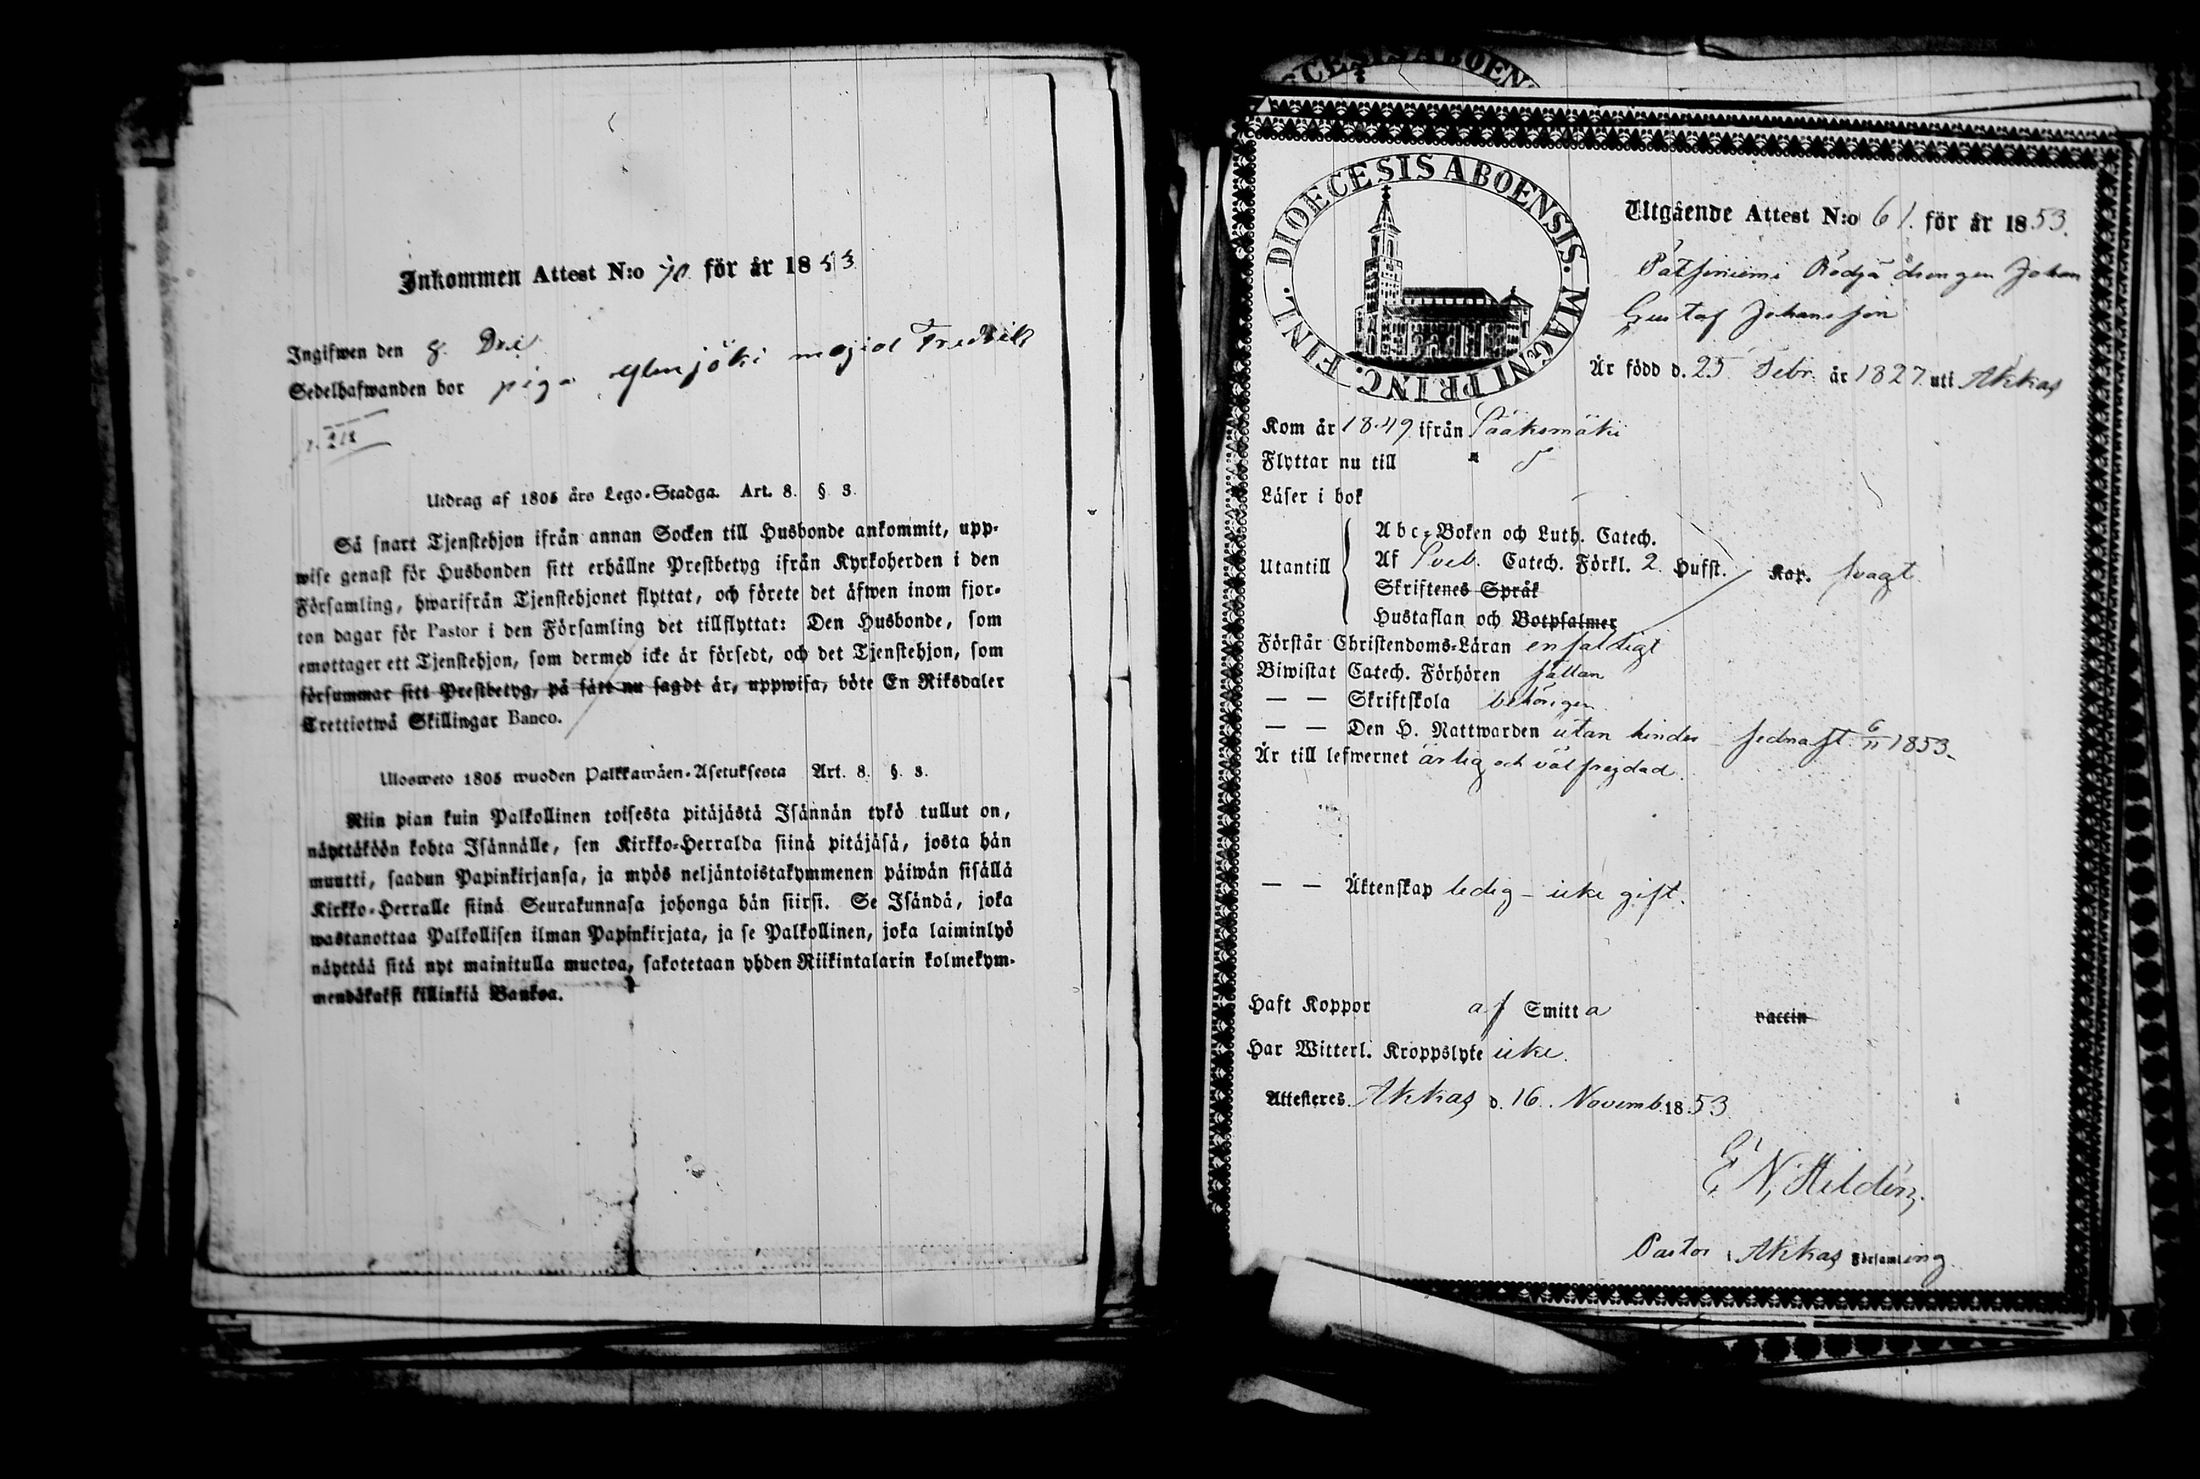 Inkommen Attest N:o 70 för år 1853
Ingifwen den 8. Dec.
Sedelhafwanden bor piga
p. 218
Utdrag af 1805 års Lego-Stadga. Art. 8. §. 3.
Så snart Tjenstehjon ifrån annan Socken till Husbonde ankommit, upp-
wise genast för Husbonden sitt erhållne Prestbetyg ifrån Kyrkoherden i den
Församling, hwarifrån Tjenstehjonet flyttat, och förete det äfwen inom fjor-
ton dagar för Pastor i den Församling det tillflyttat: Den Husbonde, som
emottager ett Tjenstehjon, som dermed icke är försedt, och det Tjenstehjon, som
försummar sitt Prestbetyg, på sätt nu sagdt är, uppwisa, böte En Riksdaler
Trettiotwå Skillingar Banco.
Ulosweto 1805 wuoden Palkkawäen-Asetuksesta Art. 8. §. 3.
Niin pian kuin Palkollinen toisesta pitäjästä Isännän tykö tullut on,
näyttäköön kohta Isännälle, sen Kirkko-Herralda siinä pitäjäsä, josta hän
muutti, saadun Papinkirjansa, ja myös neljäntoistakymmenen päiwän sisällä
Kirkko-Herralle siinä Seurakunnasa johonga hän siirsi. Se Isändä, joka
wastanottaa Palkollisen ilman Papinkirjata, ja se Palkollinen, joka laiminlyö
näyttää sitä nyt mainitulla muotoa, sakotetaan yhden Riikintalarin kolmekym-
mendäkaksi killinkiä Bankoa.
DIOECESIS ABOENSIS. MAGNI PRINC. FINL.
Utgående Attest N:o 61. för år 1853.
drengen Johan
Gustaf Johansson
Är född d. 25 Febr. år 1827 uti Akkas
Kom år 1849 ifrån Sääksmäki
Flyttar nu till
Läser i bok
Utantill
Abc-Boken och Luth. Catech.
Af Sveb. Catech. Förkl. 2 Hufst. Kap. svagt
Skriftenes Språk
Hustaflan och Botpsalmer
Förstår Christendoms-Läran enfaldigt
Biwistat Catech. Förhören sällan
— — Skriftskola behörigen
— — Den H. Nattwarden utan hinder sednast 6/11 1853.
Är till lefwernet ärlig och välfrejdad.
— — Äktenskap ledig – icke gift.
Haft Koppor af Smitta vaccin
Har Witterl. Kroppslyte icke.
Attesteres Akkas d. 16. Novemb. 1853
E. N. Hildén.
Pastor i Akkas Församling